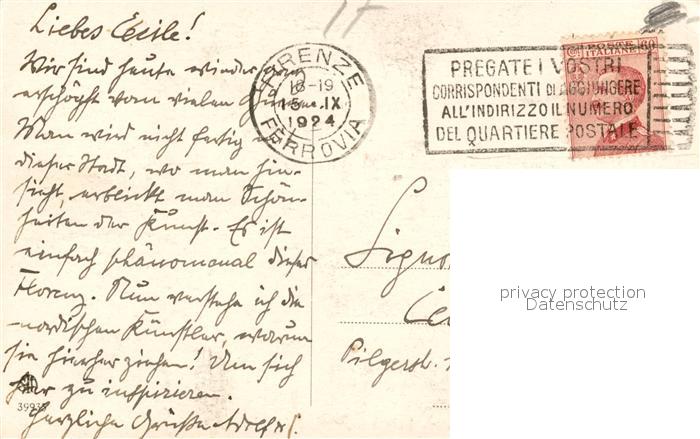 Liebes Cecile!
Wir sind heute wieder ganz
erschöpft vom vielen
Man wird nicht fertig in
dieser Stadt, wo man hin-
sieht, erblickt man Schön-
heiten der Kunst. Es ist
einfach phänomenal dieses
Florenz. Nun verstehe ich die
nordischen Künstler, warum
sie hierher ziehen! Um sich
hier zu inspirieren.
Herzliche Grüße Adolf
39935
FIRENZE
18-19
15 IX
1924
FERROVIA
PREGATE I VOSTRI
CORRISPONDENTI DI AGGIUNGERE
ALL'INDIRIZZO IL NUMERO
DEL QUARTIERE POSTALE
POSTE
ITALIANE
60
Pilgerstr.
privacy protection
Datenschutz